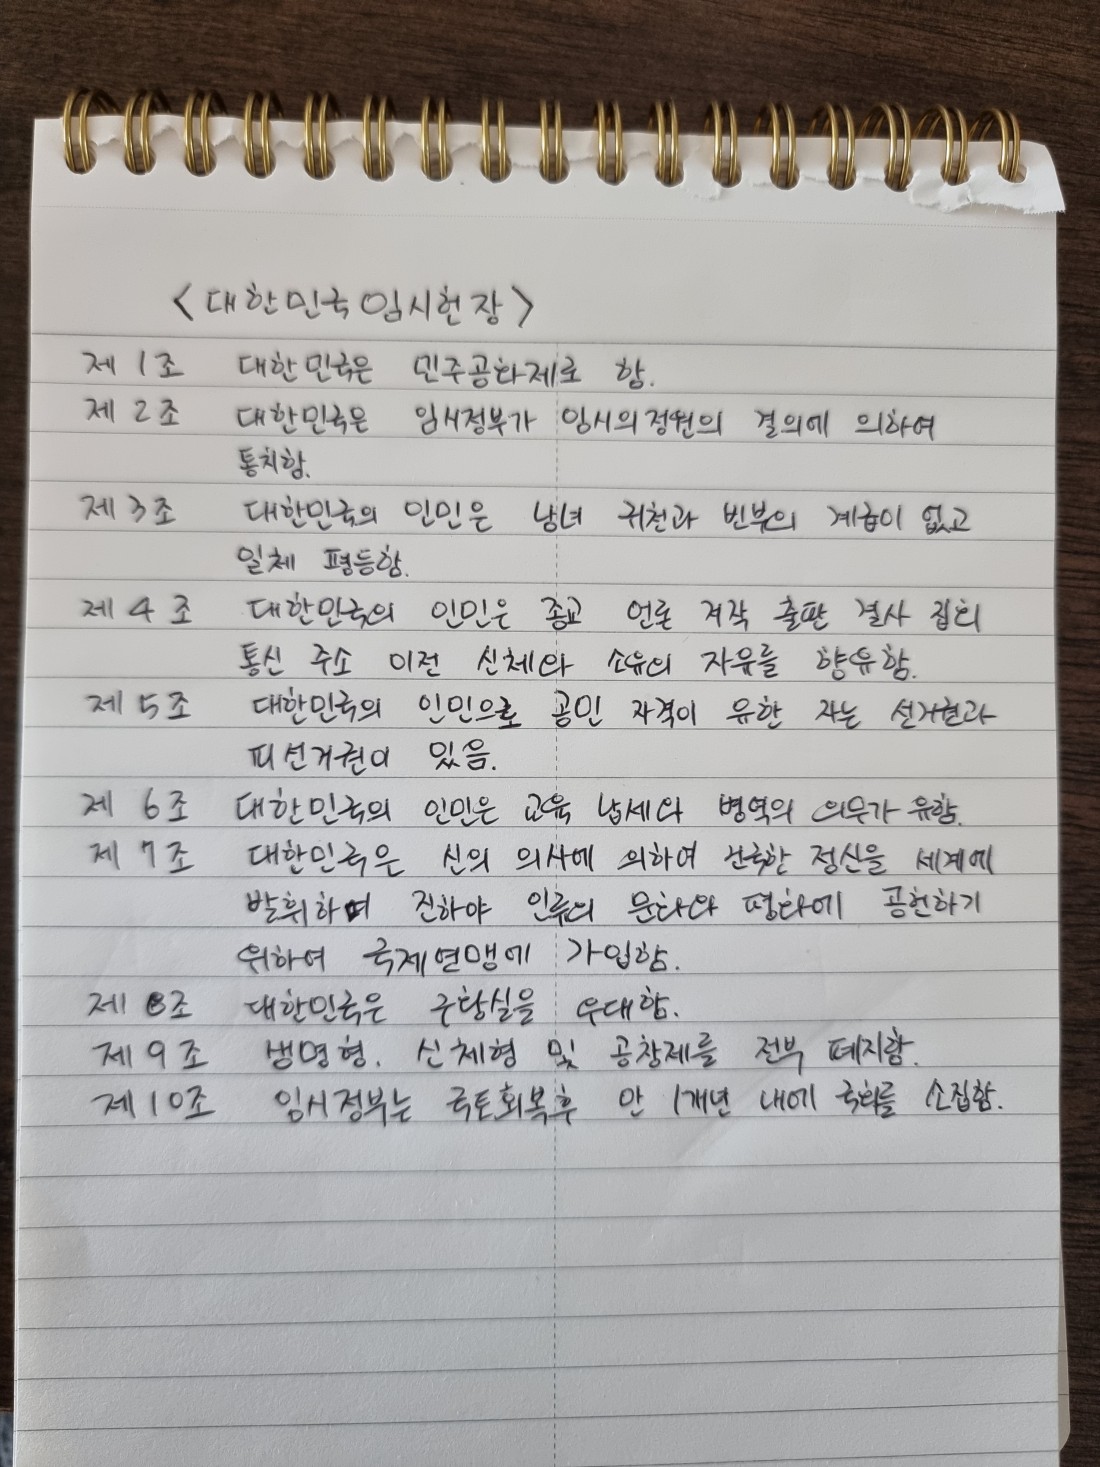 <대한민국임시헌장>
제 1조 대한민국은 민주공화제로 함.
제 2조 대한민국은 임시정부가 임시의정원의 결의에 의하여
통치함.
제 3조 대한민국의 인민은 남녀 귀천과 빈부의 계급이 없고
일체 평등함.
제 4조 대한민국의 인민은 종교 언론 저작 출판 결사 집회
통신 주소 이전 신체와 소유의 자유를 향유함.
제 5조 대한민국의 인민으로 공민 자격이 유한 자는 선거권과
피선거권이 있음.
제 6조 대한민국의 인민은 교육 납세와 병역의 의무가 유함.
제 7조 대한민국은 신의 의사에 의하여 건국한 정신을 세계에
발휘하며 진하야 인류의 문화와 평화에 공헌하기
위하여 국제연맹에 가입함.
제 8조 대한민국은 구황실을 우대함.
제 9조 생명형. 신체형 및 공창제를 전부 폐지함.
제 10조 임시정부는 국토회복후 만 1개년 내에 국회를 소집함.